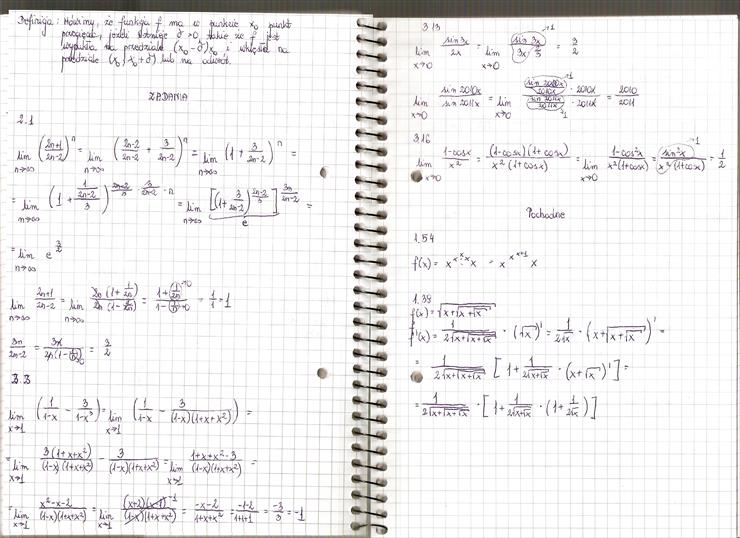 Definicja: Mówimy, że funkcja f ma w punkcie x₀ punkt
przegięcia, jeżeli istnieje δ>0 takie że f jest
wypukła na przedziale (x₀-δ, x₀) i wklęsła na
przedziale (x₀, x₀+δ) lub na odwrót.
ZADANIA
2.1
lim n→∞ ((2n+1)/(2n-2))^n = lim n→∞ ((2n-2)/(2n-2) + 3/(2n-2))^n = lim n→∞ (1 + 3/(2n-2))^n =
= lim n→∞ (1 + 1/((2n-2)/3))^((2n-2)/3 · 3/(2n-2) · n) = lim n→∞ [(1+ 3/(2n-2))^((2n-2)/3)]^(3n/(2n-2)) =
e
= lim n→∞ e^(3/2)
lim n→∞ (2n+1)/(2n-2) = lim n→∞ 2n(1+1/2n)/2n(1-2/2n) = (1+1/2n)/(1-1/n) = 1/1 = 1
3n/(2n-2) = 3n/2n(1-1/n) = 3/2
3.3
lim x→1 (1/(1-x) - 3/(1-x³)) = lim x→1 (1/(1-x) - 3/((1-x)(1+x+x²))) =
= lim x→1 3(1+x+x²)/((1-x)(1+x+x²)) - 3/((1-x)(1+x+x²)) = lim x→1 (1+x+x²-3)/((1-x)(1+x+x²)) =
= lim x→1 (x²-x-2)/((1-x)(1+x+x²)) = lim x→1 (x+2)(x-1)·-1/((1-x)(1+x+x²)) = (-x-2)/(1+x+x²) = (-1-2)/(1+1+1) = -3/3 = -1
3.13
lim x→0 sin3x/2x = lim x→0 sin3x/(3x·2/3) →1 = 3/2
lim x→0 sin2010x/sin2011x = lim x→0 (sin2010x/2010x · 2010x)/(sin2011x/2011x · 2011x) = 2010/2011
3.16
lim x→0 (1-cosx)/x² = (1-cosx)(1+cosx)/(x²(1+cosx)) = lim x→0 (1-cos²x)/(x²(1+cosx)) = sin²x/(x²(1+cosx)) →1 = 1/2
Pochodne
1.54
1.38
f(x) = √(x+√(x+√x))
f'(x) = 1/(2√(x+√(x+√x))) · (√x)' = 1/(2√x) · (x+√(x+√x))' =
= 1/(2√(x+√(x+√x))) [1 + 1/(2√(x+√x)) · (x+√x)'] =
= 1/(2√(x+√(x+√x))) · [1 + 1/(2√(x+√x)) · (1 + 1/(2√x))]